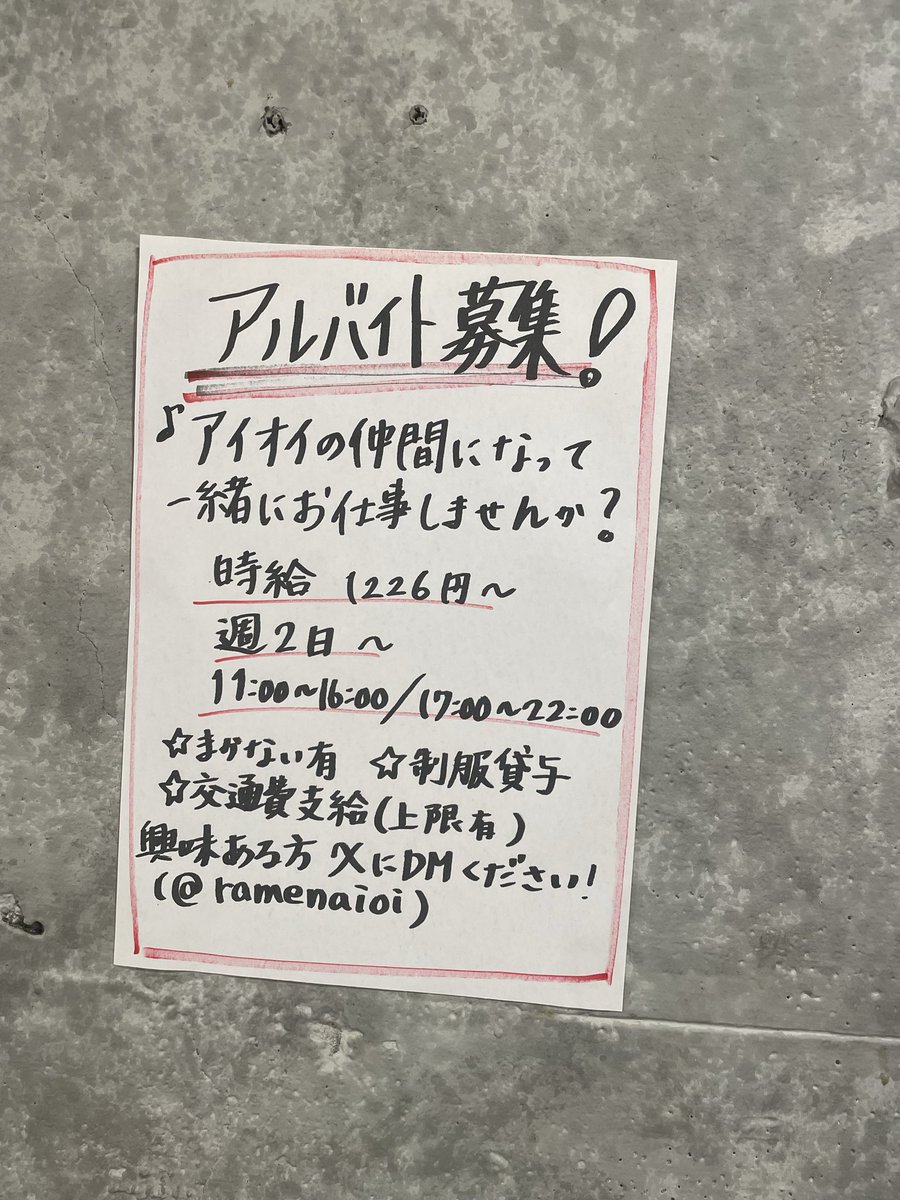 アルバイト募集!
♪アイオイの仲間になって
一緒にお仕事しませんか?
時給 1226円〜
週2日 〜
11:00〜16:00/17:00〜22:00
☆まかない有 ☆制服貸与
☆交通費支給(上限有)
興味ある方 XにDMください!
(@ramenaioi)